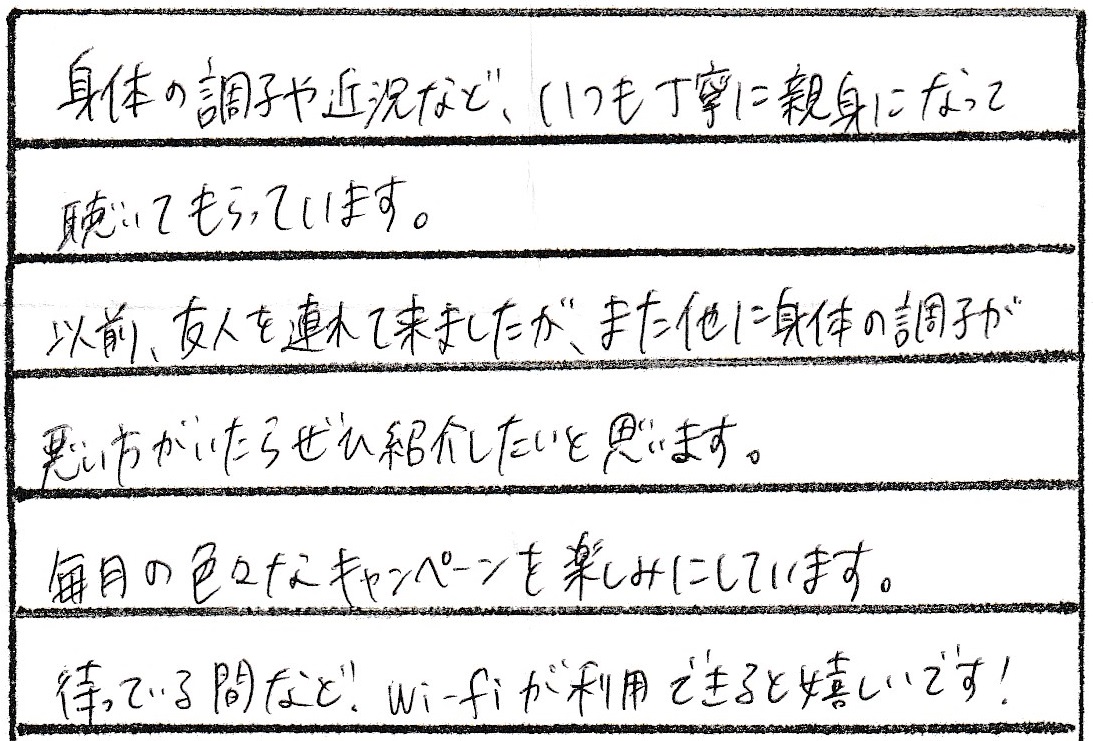 身体の調子や近況など、いつも丁寧に親身になって
聴いてもらっています。
以前、友人を連れて来ましたが、また他に身体の調子が
悪い方がいたらぜひ紹介したいと思います。
毎月の色々なキャンペーンを楽しみにしています。
待っている間など、wi-fiが利用できると嬉しいです!